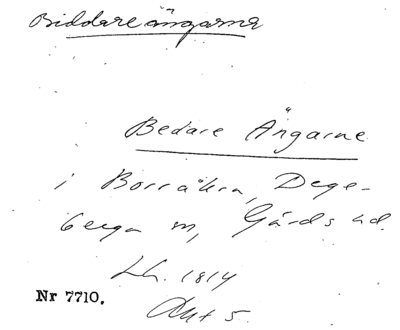 Biddareängarna
Bedare Ängarne
i Borråkra, Dege-
berga sn, Gärds hd.
Lh. 1814
Nr 7710.
Akt 5.